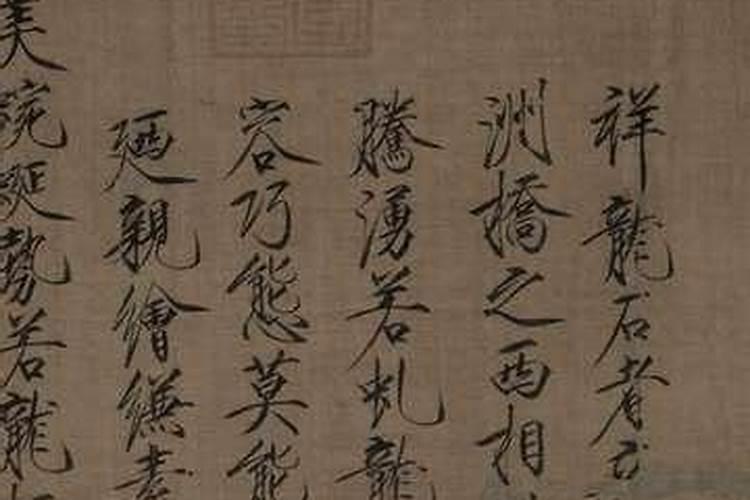 祥龍石者
洲橋之西相
騰湧若虬龍
容巧態莫能
廼親繪縑素
美蜿蜒勢若龍